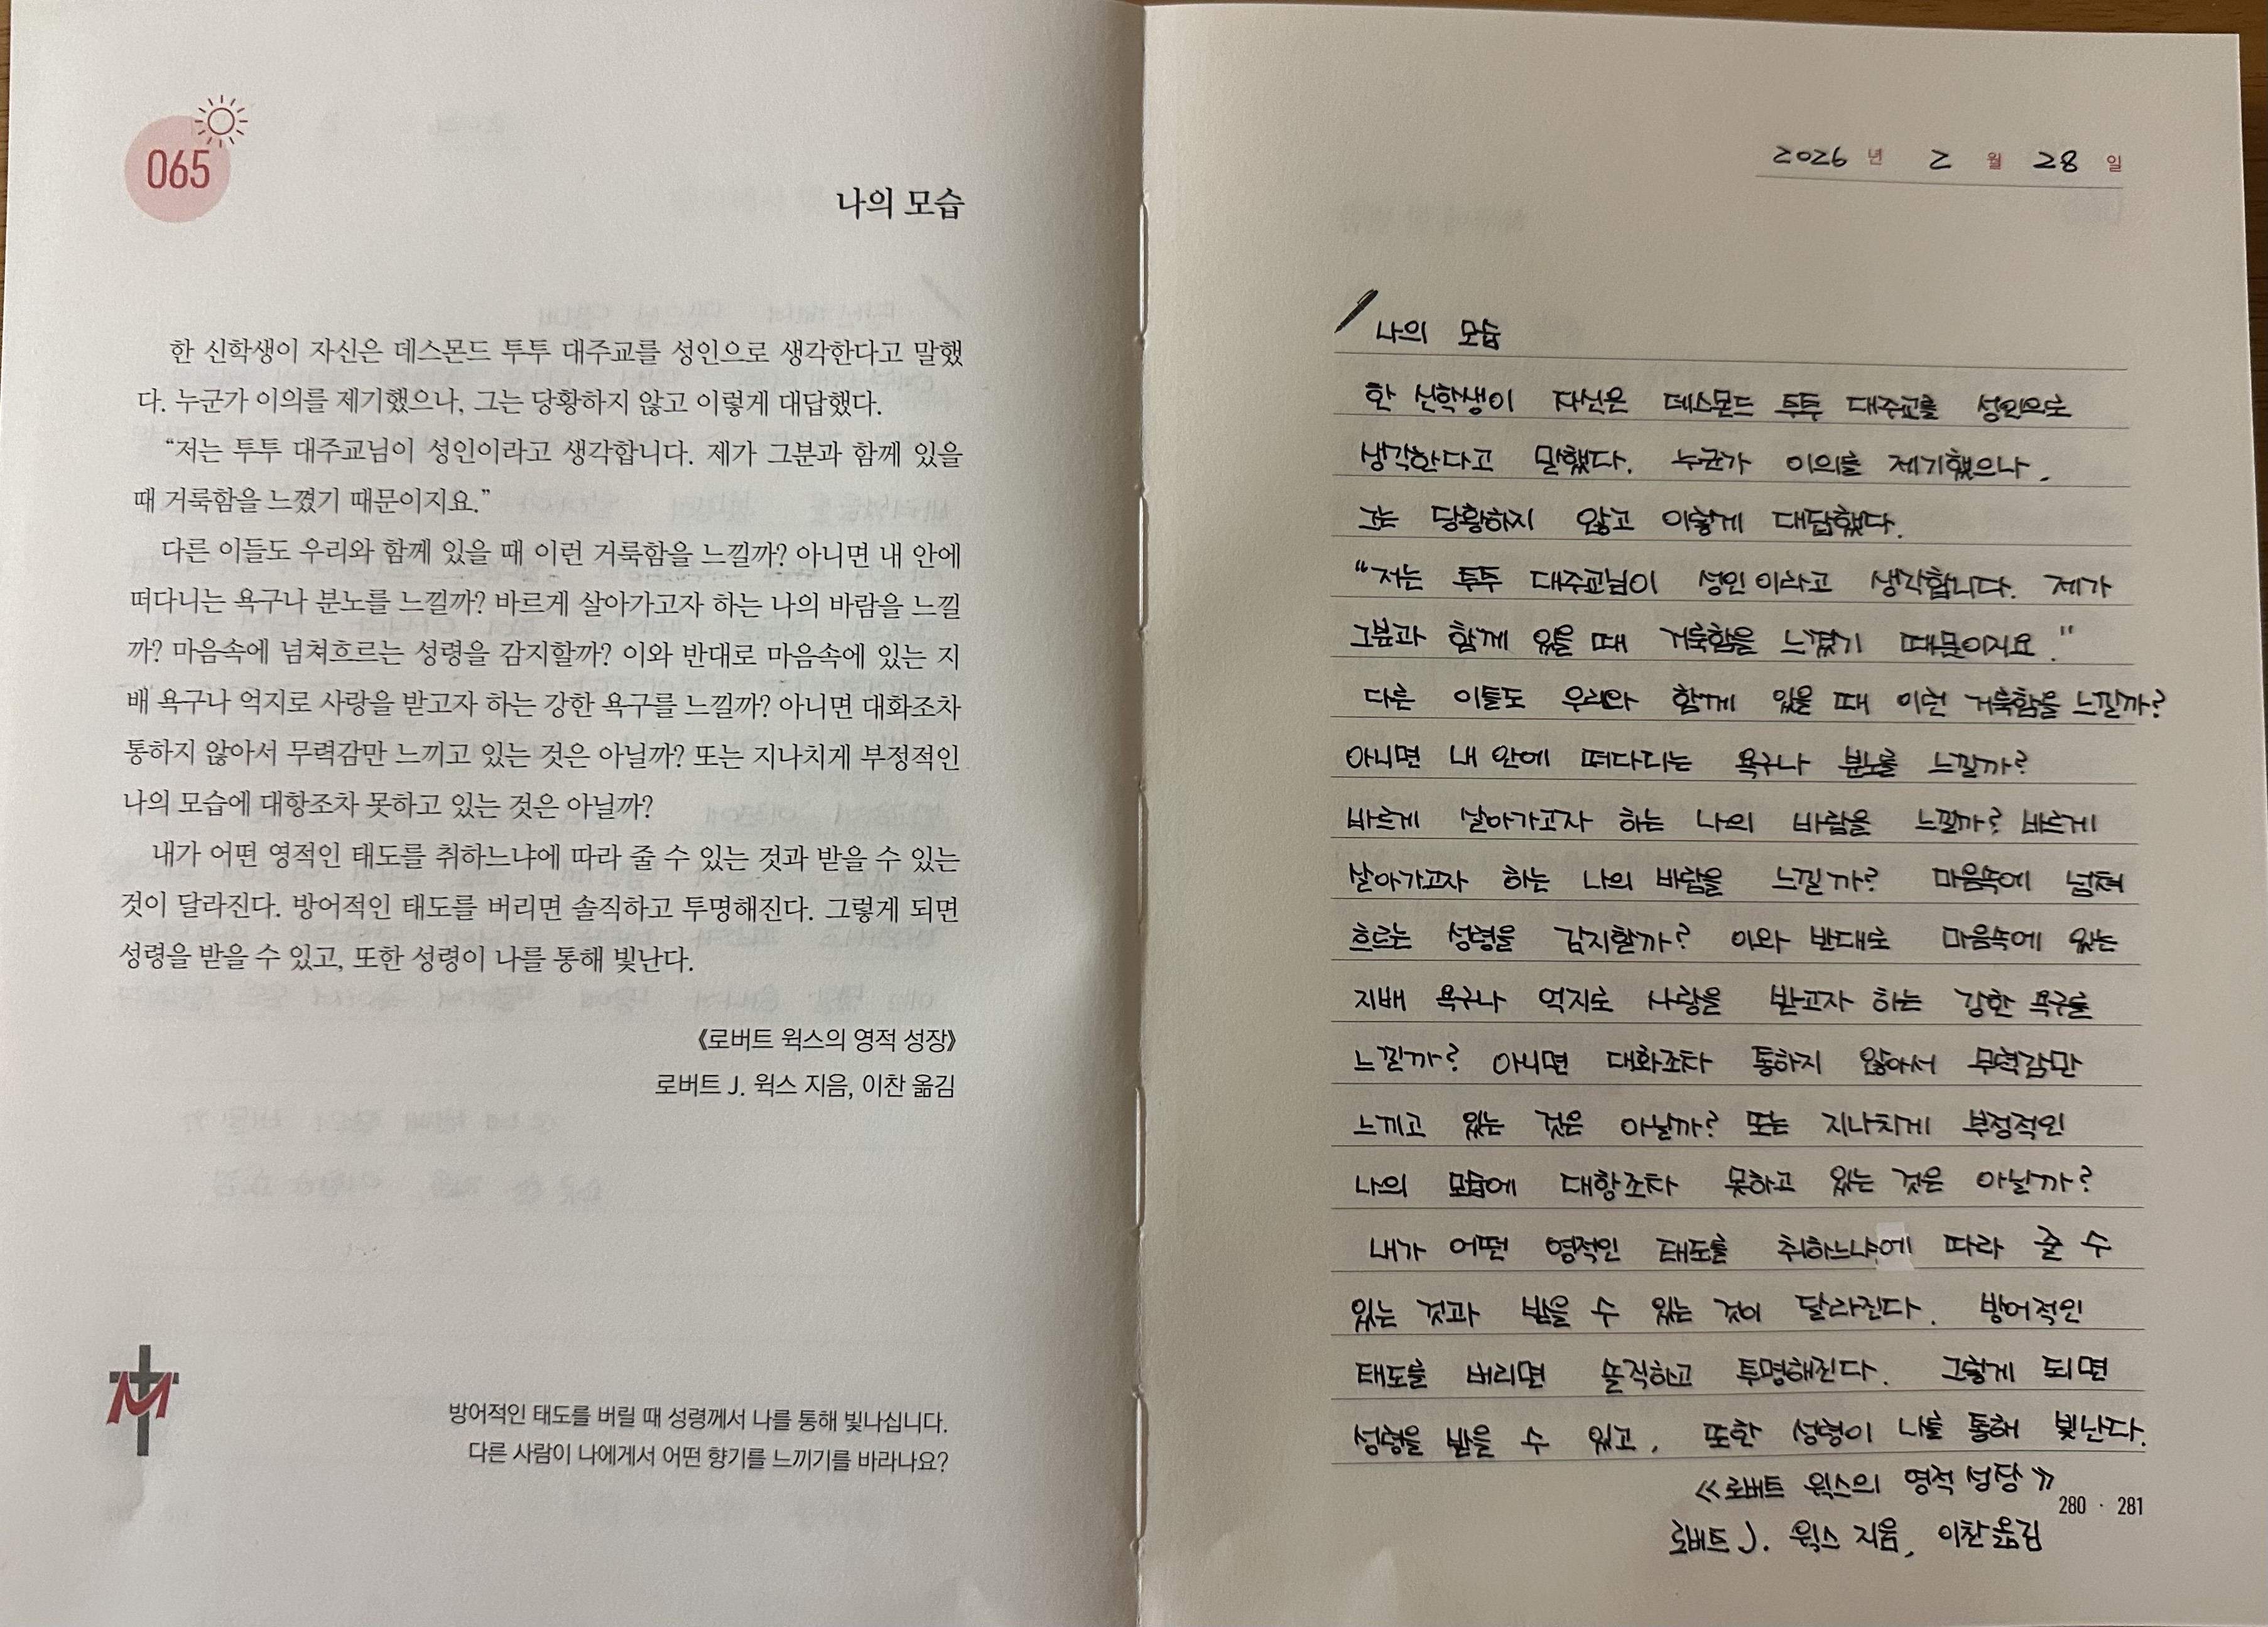 065
나의 모습
한 신학생이 자신은 데스몬드 투투 대주교를 성인으로 생각한다고 말했
다. 누군가 이의를 제기했으나, 그는 당황하지 않고 이렇게 대답했다.
“저는 투투 대주교님이 성인이라고 생각합니다. 제가 그분과 함께 있을
때 거룩함을 느꼈기 때문이지요.”
다른 이들도 우리와 함께 있을 때 이런 거룩함을 느낄까? 아니면 내 안에
떠다니는 욕구나 분노를 느낄까? 바르게 살아가고자 하는 나의 바람을 느낄
까? 마음속에 넘쳐흐르는 성령을 감지할까? 이와 반대로 마음속에 있는 지
배 욕구나 억지로 사랑을 받고자 하는 강한 욕구를 느낄까? 아니면 대화조차
통하지 않아서 무력감만 느끼고 있는 것은 아닐까? 또는 지나치게 부정적인
나의 모습에 대항조차 못하고 있는 것은 아닐까?
내가 어떤 영적인 태도를 취하느냐에 따라 줄 수 있는 것과 받을 수 있는
것이 달라진다. 방어적인 태도를 버리면 솔직하고 투명해진다. 그렇게 되면
성령을 받을 수 있고, 또한 성령이 나를 통해 빛난다.
《로버트 윅스의 영적 성장》
로버트 J. 윅스 지음, 이찬 옮김
M
방어적인 태도를 버릴 때 성령께서 나를 통해 빛나십니다.
다른 사람이 나에게서 어떤 향기를 느끼기를 바라나요?
2026 년 2 월 28 일
나의 모습
한 신학생이 자신은 데스몬드 투투 대주교를 성인으로
생각한다고 말했다. 누군가 이의를 제기했으나,
그는 당황하지 않고 이렇게 대답했다.
“저는 투투 대주교님이 성인이라고 생각합니다. 제가
그분과 함께 있을 때 거룩함을 느꼈기 때문이지요."
다른 이들도 우리와 함께 있을 때 이런 거룩함을 느낄까?
아니면 내 안에 떠다니는 욕구나 분노를 느낄까?
바르게 살아가고자 하는 나의 바람을 느낄까? 바르게
살아가고자 하는 나의 바람을 느낄까? 마음속에 넘쳐
흐르는 성령을 감지할까? 이와 반대로 마음속에 있는
지배 욕구나 억지로 사랑을 받고자 하는 강한 욕구를
느낄까? 아니면 대화조차 통하지 않아서 무력감만
느끼고 있는 것은 아닐까? 또는 지나치게 부정적인
나의 모습에 대항조차 못하고 있는 것은 아닐까?
내가 어떤 영적인 태도를 취하느냐에 따라 줄 수
있는 것과 받을 수 있는 것이 달라진다. 방어적인
태도를 버리면 솔직하고 투명해진다. 그렇게 되면
성령을 받을 수 있고, 또한 성령이 나를 통해 빛난다.
《로버트 윅스의 영적 성장》
280 · 281
로버트 J. 윅스 지음, 이찬 옮김